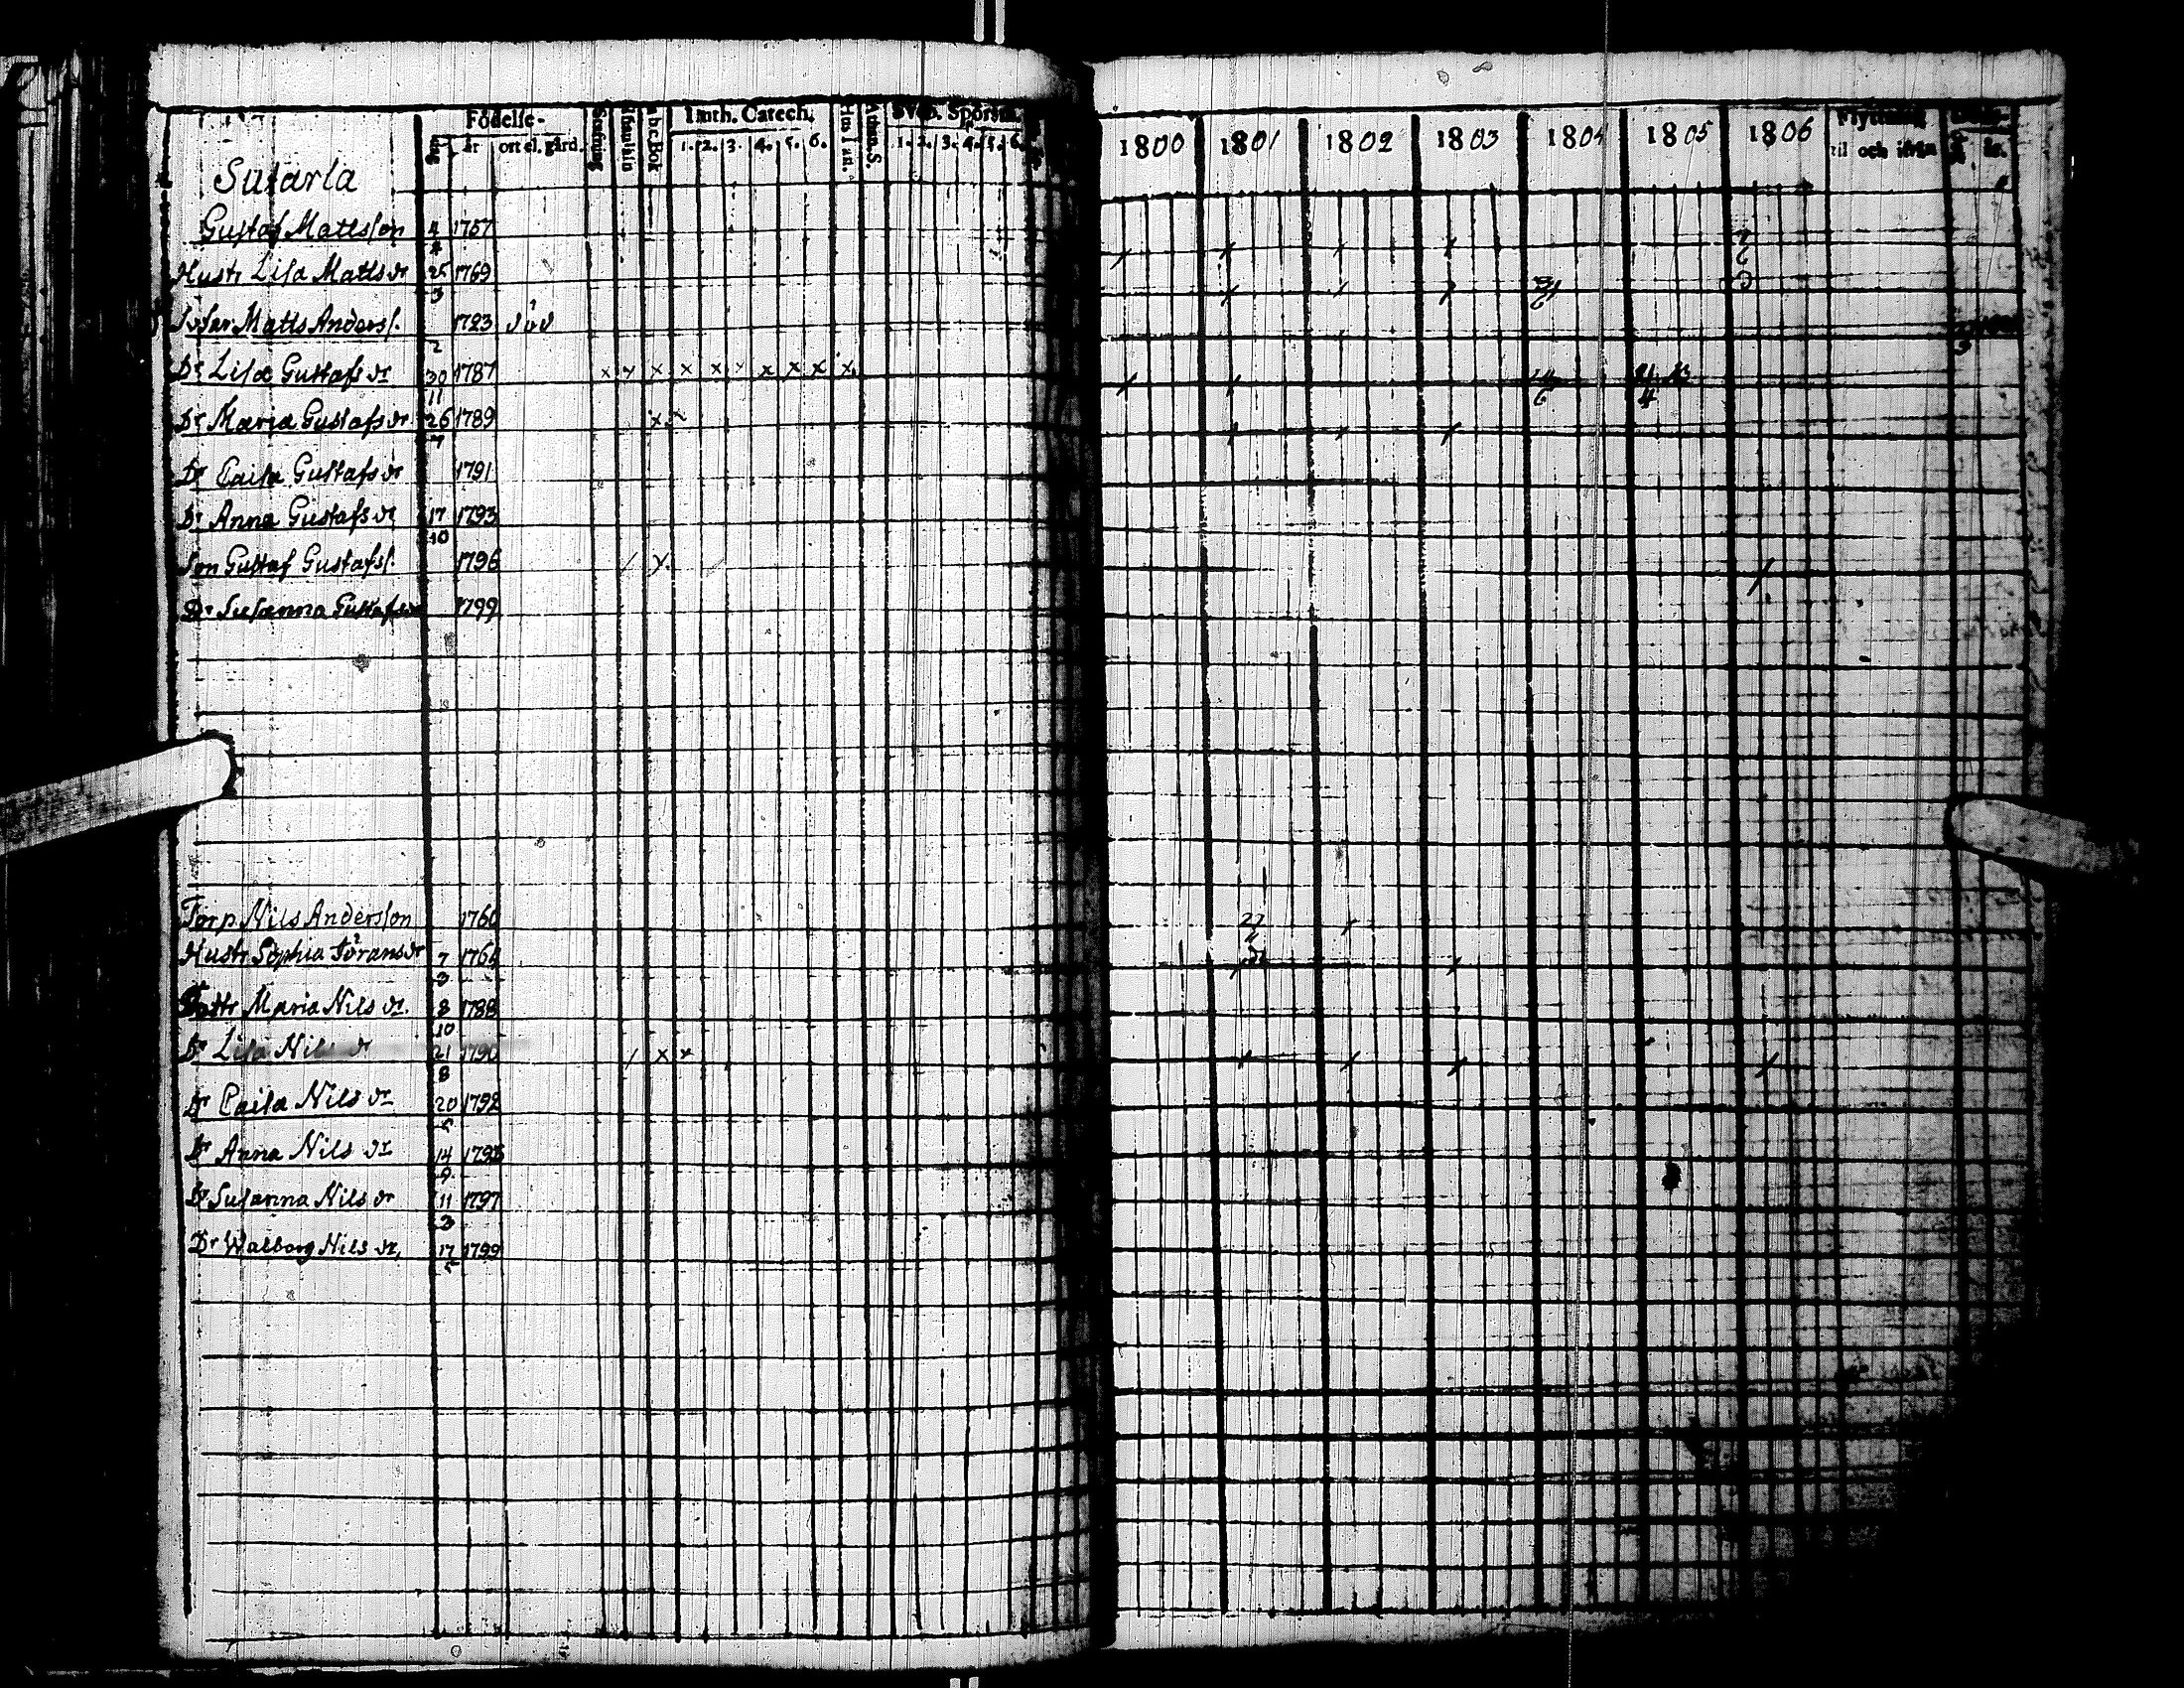 Födelse-
Luth. Catech.
Athan. S.
Sveb. Spörsm.
år ort el. gård.
a b c Bok
1. 2. 3. 4. 5. 6.
1. 2. 3. 4. 5. 6.
1800 1801 1802 1803 1804 1805 1806 Flyttning
til och ifrån
Sutarla
Gustaf Mattsson 4 1757
4
Hustr Lisa Matts dr 25 1769
3
Matts Anders. 1723
2
Dr Lisa Gustafs dr 30 1787 x x x x x x x x x x
11
Dr Maria Gustafs dr 26 1789 x x
7
Dr Caisa Gustafs dr 1791
Dr Anna Gustafs dr 17 1793
10
Son Gustaf Gustafs. 1796 / x
Dr Susanna Gustafs dr 1799
Torp. Nils Andersson 1760
Hustr Sophia Görans dr 7 1764
3
Dottr Maria Nils dr. 8 1788
10
Dr Lisa Nils dr 21 1790 / x x
8
Dr Caisa Nils dr 20 1792
5
Dr Anna Nils dr 14 1793
9
Dr Susanna Nils dr 11 1797
3
Dr Walborg Nils dr. 17 1799
5